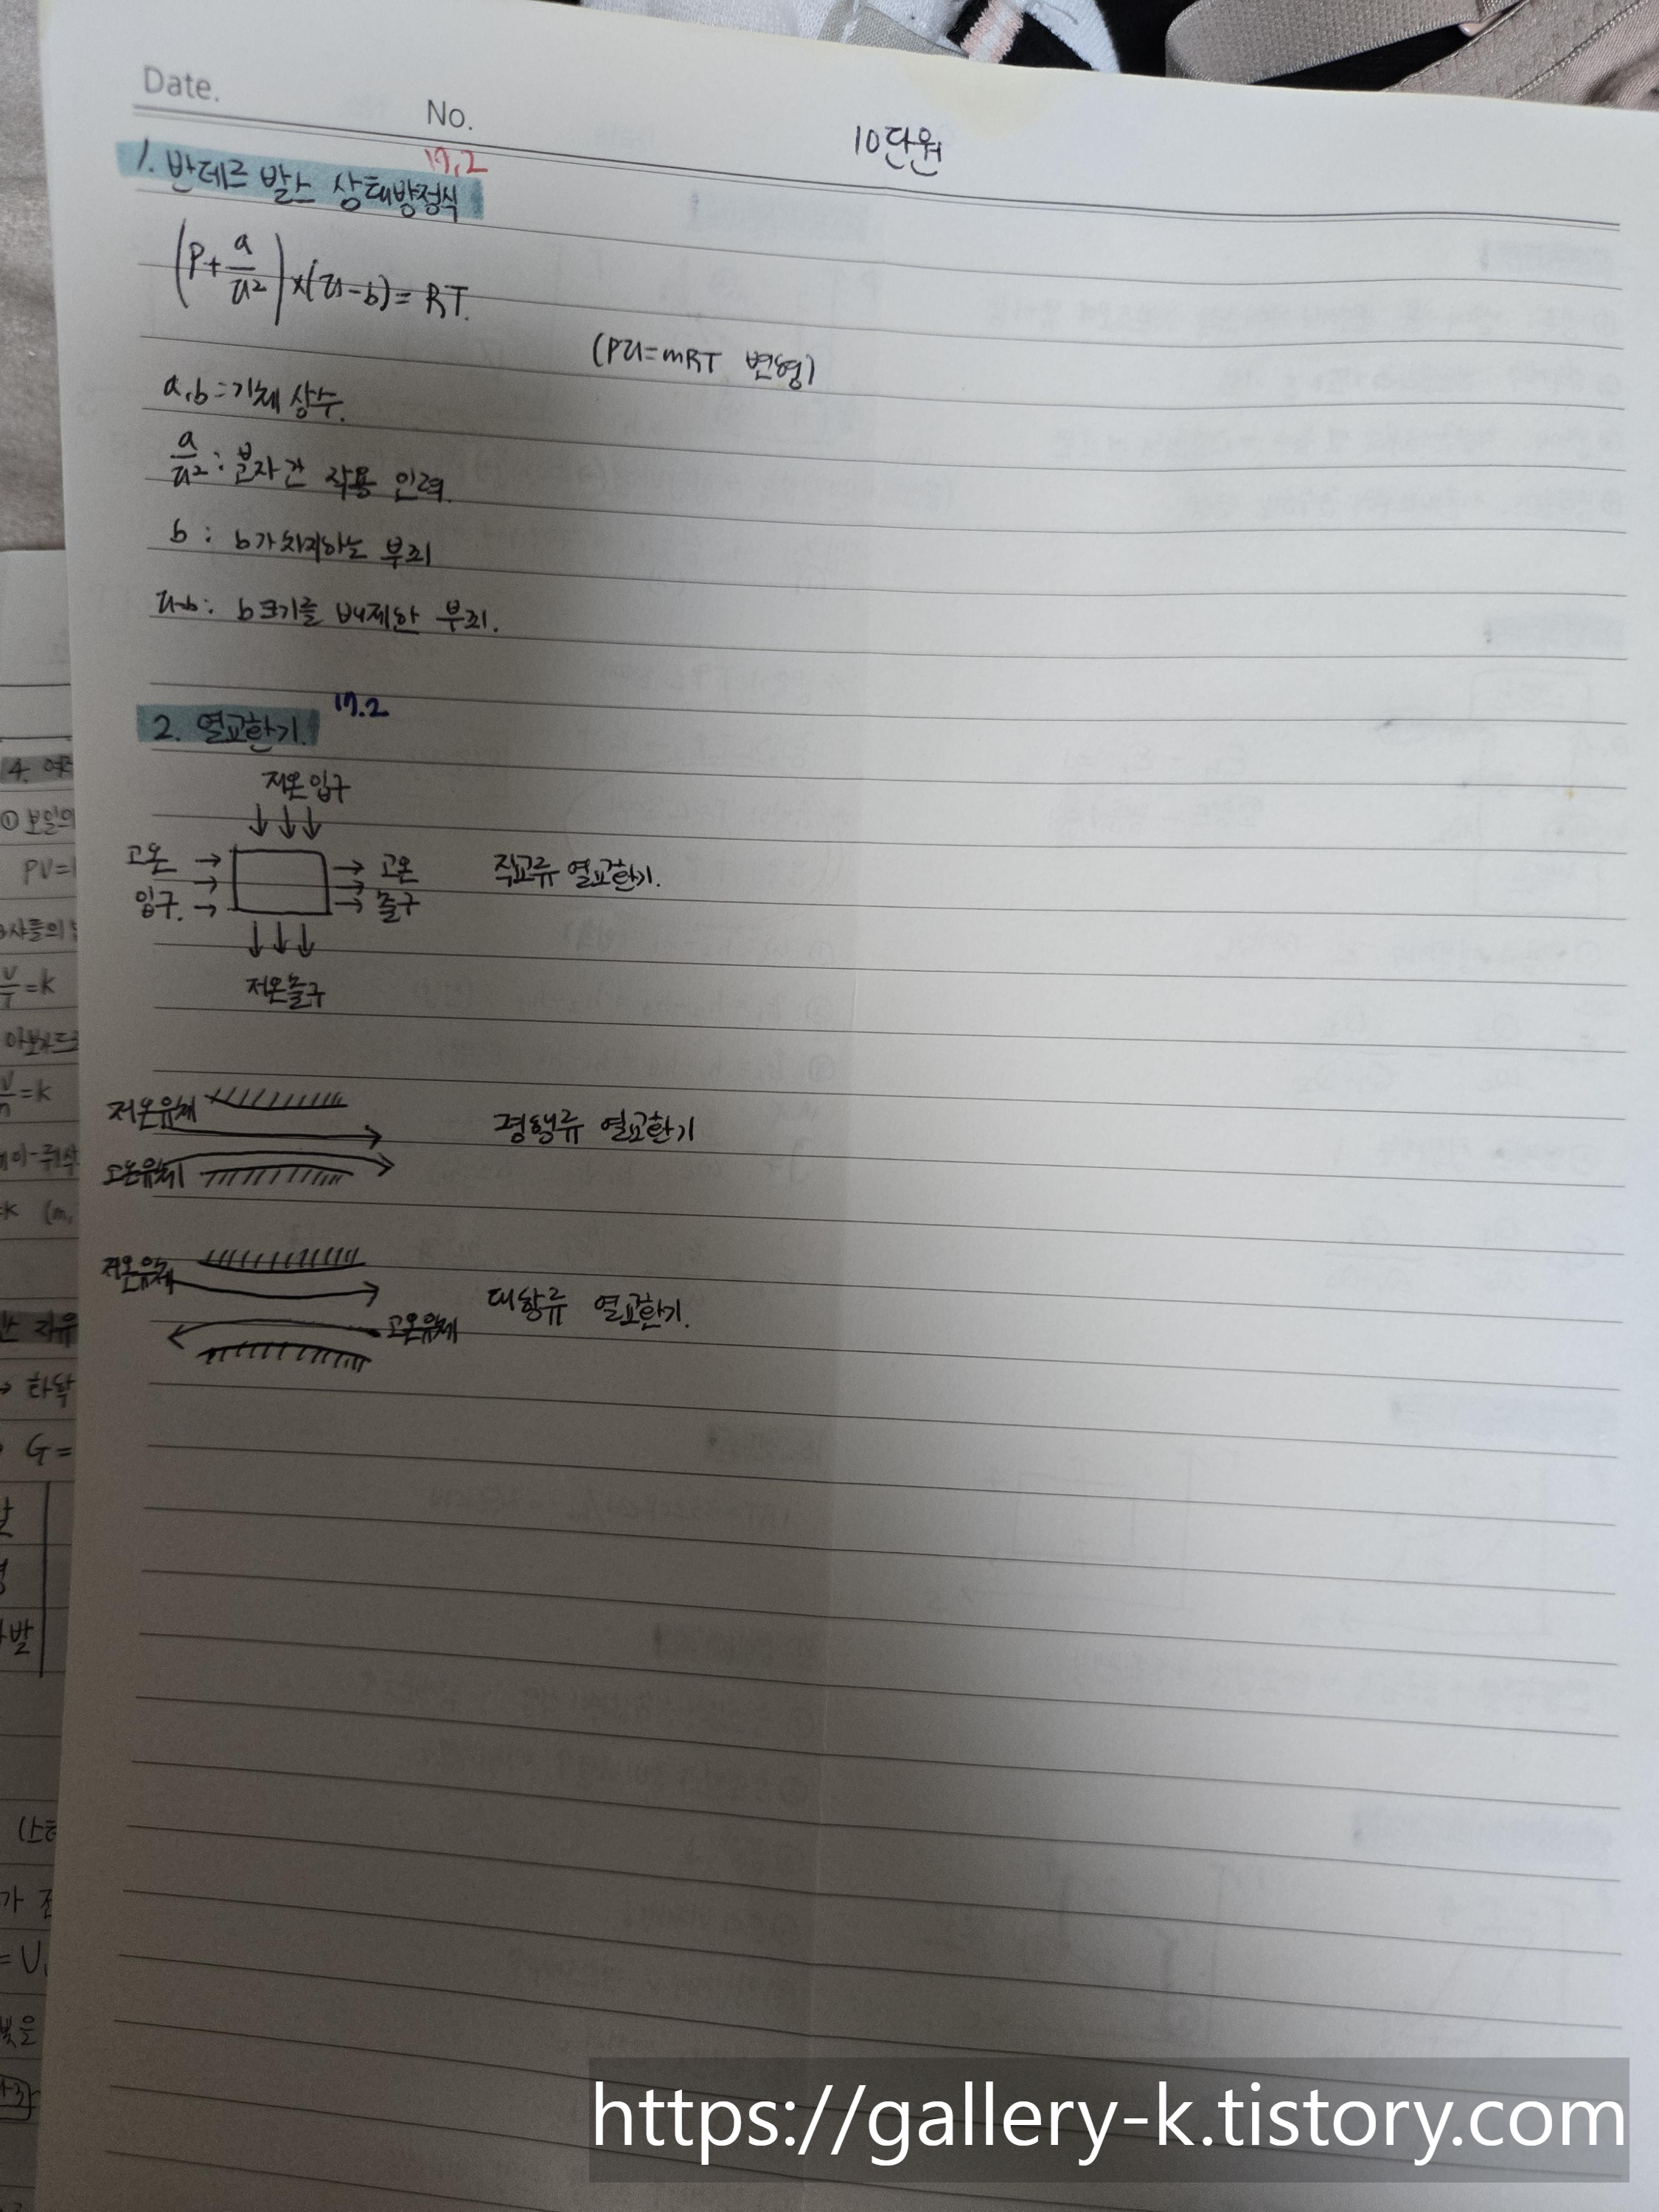 Date.
No.
10단원
17.2
1. 반데르 발스 상태방정식
(P+a/v²)×(v-b)=RT.
(Pv=mRT 변형)
a,b=기체 상수.
a/v²: 분자간 작용 인력.
b : b가 차지하는 부피
v-b: b크기를 배제한 부피.
2. 열교환기. 17.2
저온입구
고온 입구.
고온 출구
직교류 열교환기.
저온출구
저온유체
평행류 열교환기
고온유체
저온유체
대향류 열교환기.
고온유체
4.
① 보일의
PV=
샤를의
V/T=K
아보가드로
V/n=K
=K (m,
자유
→ 화학
G=
발
가
=U,
빛을
https://gallery-k.tistory.com